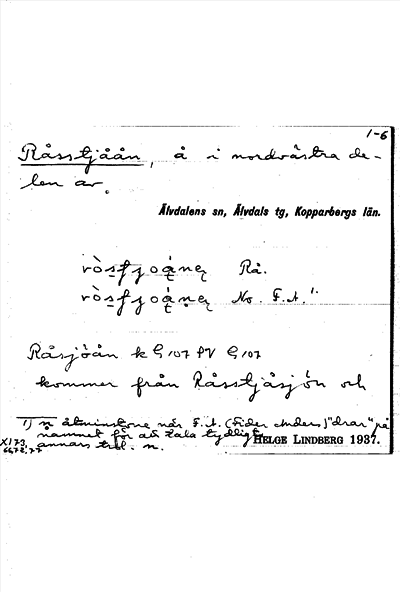 1-6
Råsstjåån, å i nordvästra de-
len av
Älvdalens sn, Älvdals tg, Kopparbergs län.
Rå.
No. F.A. 1.
Råsjöån k G 107 PV G 107
kommer från Råsstjåsjön och
1) n åtminstone när F.A. (Fider Anders) "drar" på
namnet för att tala tydligt
annars trol. n.
X173
HELGE LINDBERG 1937.